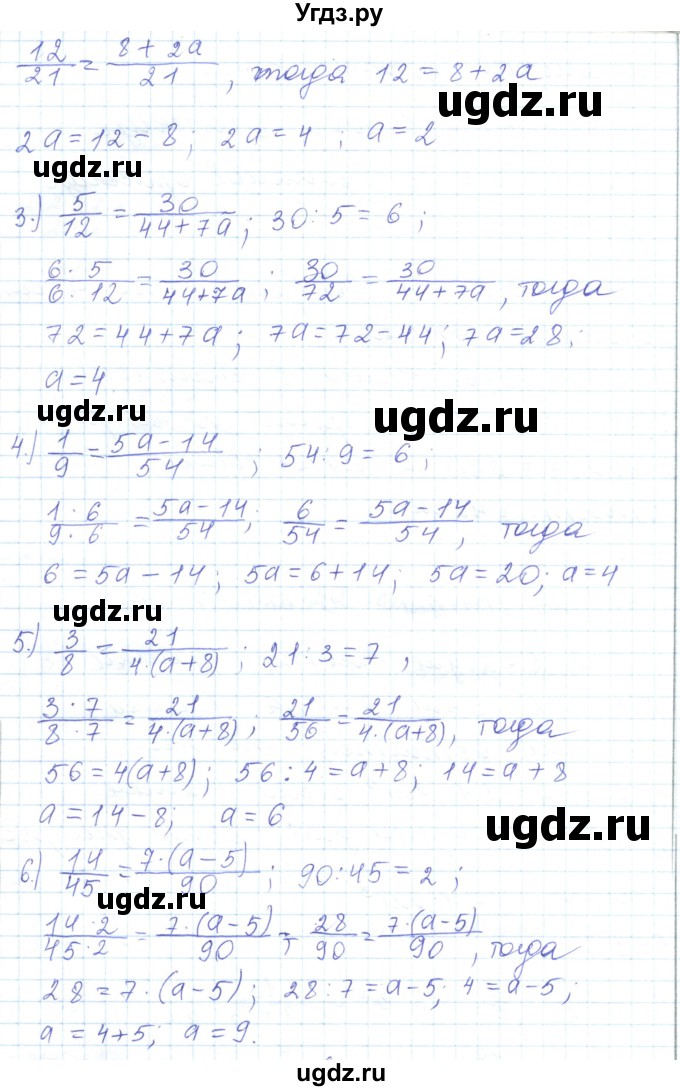 Угдз.ру
12/21 = (8 + 2a)/21, тогда 12 = 8 + 2a
ugdz.ru
2a = 12 - 8; 2a = 4; a = 2
ugdz.ru
3.) 5/12 = 30/(44+7a); 30 : 5 = 6;
(6 · 5)/(6 · 12) = 30/(44+7a); 30/72 = 30/(44+7a), тогда
72 = 44 + 7a; 7a = 72 - 44; 7a = 28;
a = 4.
ugdz.ru
ugdz.ru
4.) 1/9 = (5a - 14)/54; 54 : 9 = 6;
(1 · 6)/(9 · 6) = (5a - 14)/54; 6/54 = (5a - 14)/54, тогда
6 = 5a - 14; 5a = 6 + 14; 5a = 20; a = 4
ugdz.ru
5.) 3/8 = 21/(4·(a+8)); 21 : 3 = 7,
(3 · 7)/(8 · 7) = 21/(4·(a+8)); 21/56 = 21/(4·(a+8)), тогда
56 = 4(a+8); 56 : 4 = a+8; 14 = a + 8
a = 14 - 8; a = 6
ugdz.ru
6.) 14/45 = 7·(a-5)/90; 90 : 45 = 2;
ugdz.ru
(14 · 2)/(45 · 2) = 7·(a-5)/90; 28/90 = 7·(a-5)/90, тогда
28 = 7·(a-5); 28 : 7 = a-5; 4 = a-5;
a = 4+5; a = 9.